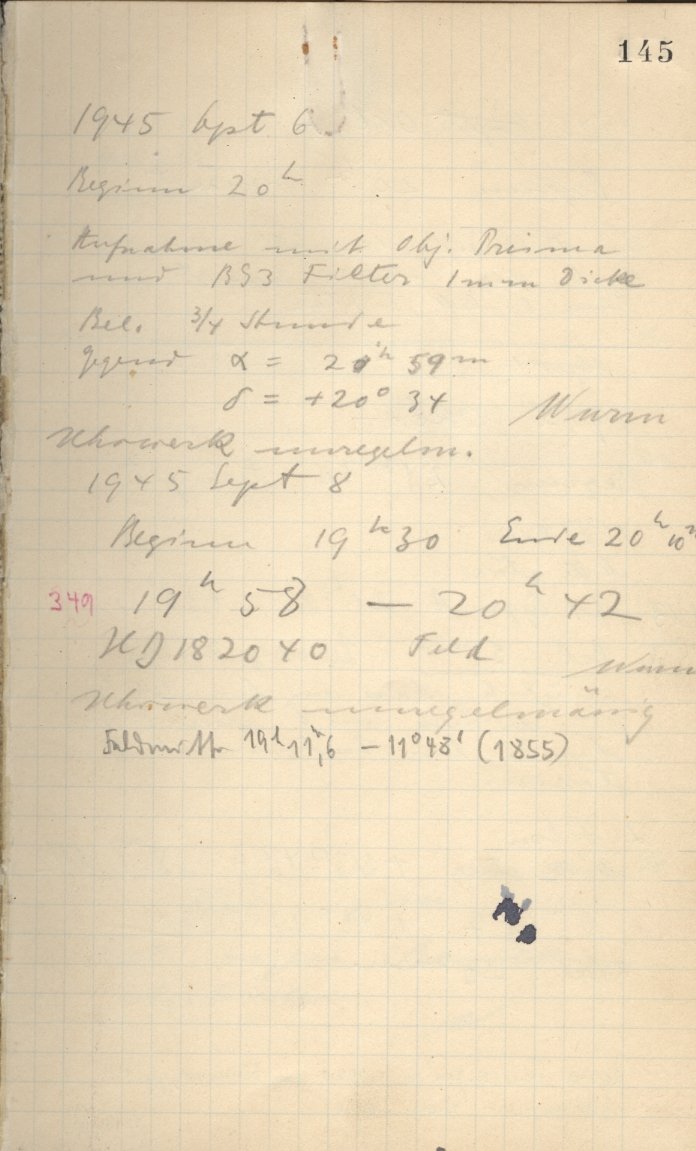 145
1945 Sept 6.
Beginn 20ʰ
Aufnahme mit Obj. Prisma
und BG3 Filter 1mm Dicke
Bel. 3/4 Stunde
Gegend α = 20ʰ 59ᵐ
δ = +20° 34
Wurm
Uhrwerk unregelm.
1945 Sept 8
Beginn 19ʰ30 Ende 20ʰ 10ᵐ
349 19ʰ 58 — 20ʰ 42
HD 182040 Feld
Wurm
Uhrwerk unregelmässig
Feldmitte 19ʰ 11ᵐ,6 −11°48' (1855)